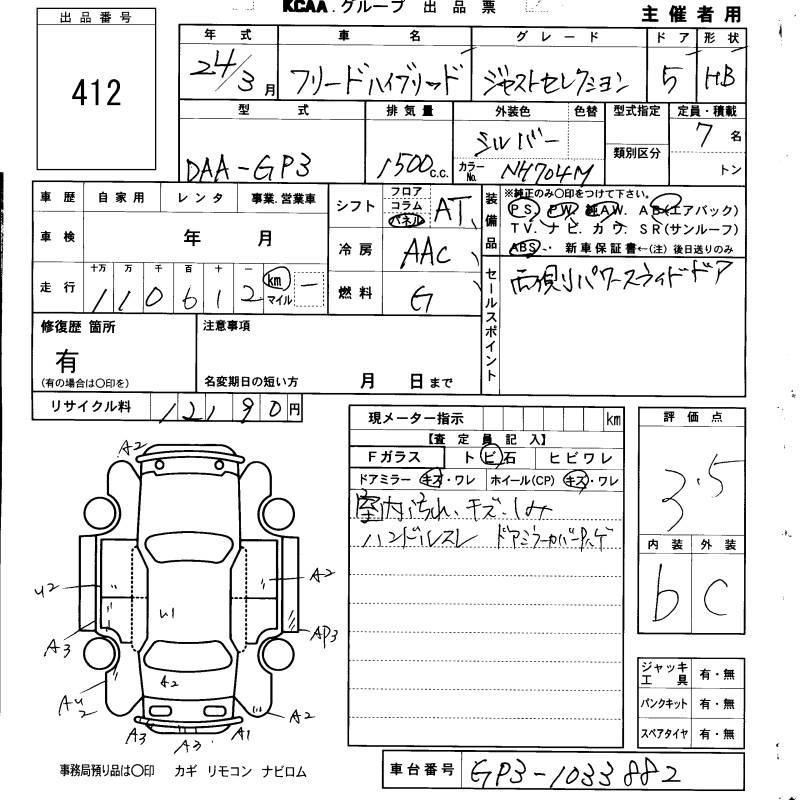 KCAA.グループ 出品票
主催者用
出品番号
412
年式 車名 グレード ドア 形状
24/3月 フリードハイブリッド ジャストセレクション 5 HB
型式 排気量 外装色 色替 型式指定 定員・積載
DAA-GP3 1500c.c. シルバー 7名
カラーNo. NH704M 類別区分 トン
車歴 自家用 レンタ 事業.営業車
車検 年 月
走行 十万 万 千 百 十 一
110612 km マイル
シフト フロア コラム パネル AT
冷房 AAC
燃料 G
装備品 ※純正のみ○印をつけて下さい。
PS. PW. 純AW. AB(エアバック)
TV. ナビ. カワ. SR(サンルーフ)
ABS. 新車保証書←(注)後日送りのみ
セールスポイント
両側リパワースライドドア
修復歴 箇所
有
(有の場合は○印を)
注意事項
名変期日の短い方 月 日まで
リサイクル料 12190円
現メーター指示 km
【査定員記入】
Fガラス ト ビ石 ヒビワレ
ドアミラー キズ・ワレ ホイール(CP) キズ・ワレ
室内汚れ、キズ、しみ
ハンドルスレ ドアミラーカバー
評価点
3.5
内装 外装
b C
A2
U2
A2
U1
A3
AP3
A2
AU2
A2
A3
A3
A1
ジャッキ工具 有・無
パンクキット 有・無
スペアタイヤ 有・無
事務局預り品は○印 カギ リモコン ナビロム
車台番号 GP3-1033882